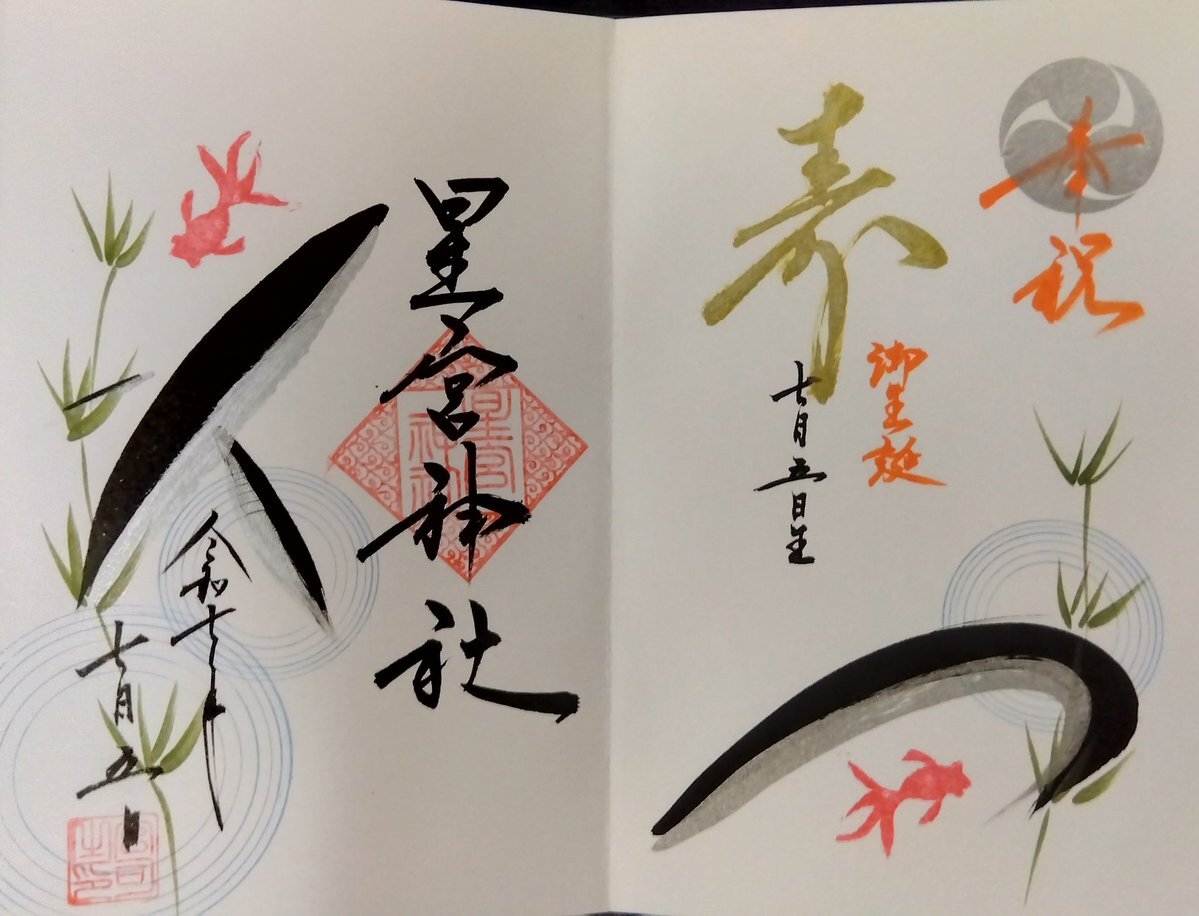 奉祝
寿
御生誕
七月五日生
つ
星宮神社
星宮神社
人
令和七年
七月五日
宮司之印